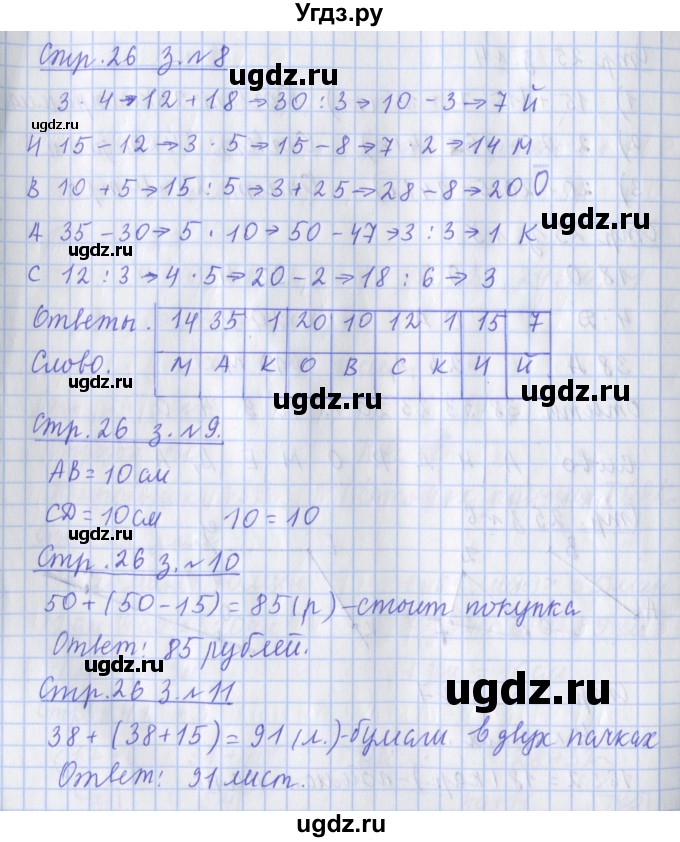 Угдз.ру
Стр. 26 з. №8
ugdz.ru
3 · 4 → 12 + 18 → 30 : 3 → 10 - 3 → 7 Й
ugdz.ru
И 15 - 12 → 3 · 5 → 15 - 8 → 7 · 2 → 14 М
В 10 + 5 → 15 : 5 → 3 + 25 → 28 - 8 → 20 О
ugdz.ru
А 35 - 30 → 5 · 10 → 50 - 47 → 3 : 3 → 1 К
ugdz.ru
С 12 : 3 → 4 · 5 → 20 - 2 → 18 : 6 → 3
Ответы. 14 35 1 20 10 12 1 15 7
Слово. М А К О В С К И Й
ugdz.ru
ugdz.ru
Стр. 26 з. №9.
АВ = 10 см
СД = 10 см 10 = 10
ugdz.ru
ugdz.ru
Стр. 26 з. №10
50 + (50 - 15) = 85 (р) - стоит покупка
Ответ: 85 рублей.
ugdz.ru
ugdz.ru
Стр. 26 з. №11
38 + (38 + 15) = 91 (л.) - бумаги в двух пачках
Ответ: 91 лист.
ugdz.ru
ugdz.ru
ugdz.ru